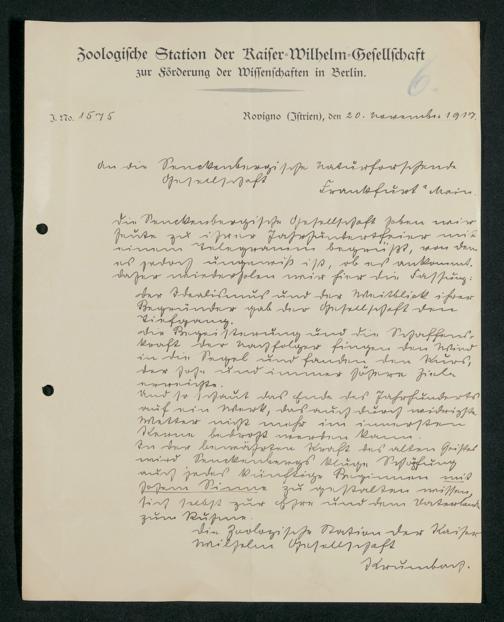 Zoologische Station der Kaiser-Wilhelm-Gesellschaft
zur Förderung der Wissenschaften in Berlin.
6.
J. No. 1575
Rovigno (Istrien), den 20. November 1917.
An die Senckenbergische Naturforschende
Gesellschaft
Frankfurt a Main
Die Senckenbergische Gesellschaft haben wir
heute zu ihrer Jahrhundertfeier mit
einem Telegramm begrüßt, von dem
es jedoch ungewiß ist, ob es ankommt.
Daher wiederholen wir hier die Fassung:
Der Idealismus und der Weitblick ihrer
Begründer gab der Gesellschaft den
Tiefgang.
Die Begeisterung und die Schaffens-
kraft der Nachfolger fingen den Wind
in die Segel und fanden den Kurs,
der hohe und immer höhere Ziele
erreichte.
Und so schaut das Ende des Jahrhunderts
auf ein Werk, das auch durch widrigste
Wetter nicht mehr im innersten
Kerne bedroht werden kann.
In der bewährten Kraft des alten Geistes
wird Senckenbergs kluge Schöpfung
auch jedes künftige Beginnen mit
hohem Sinne zu gestalten wissen,
sich selbst zur Ehre und dem Vaterland
zum Ruhme.
Die Zoologische Station der Kaiser
Wilhelm Gesellschaft
Krumbach.